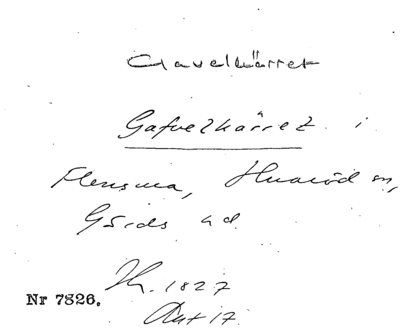 Gavelkärret
Gafvelkärret i
Flensma, Huaröd sn,
Gärds hd
Nr 7826.
Hr. 1827
Akt 17